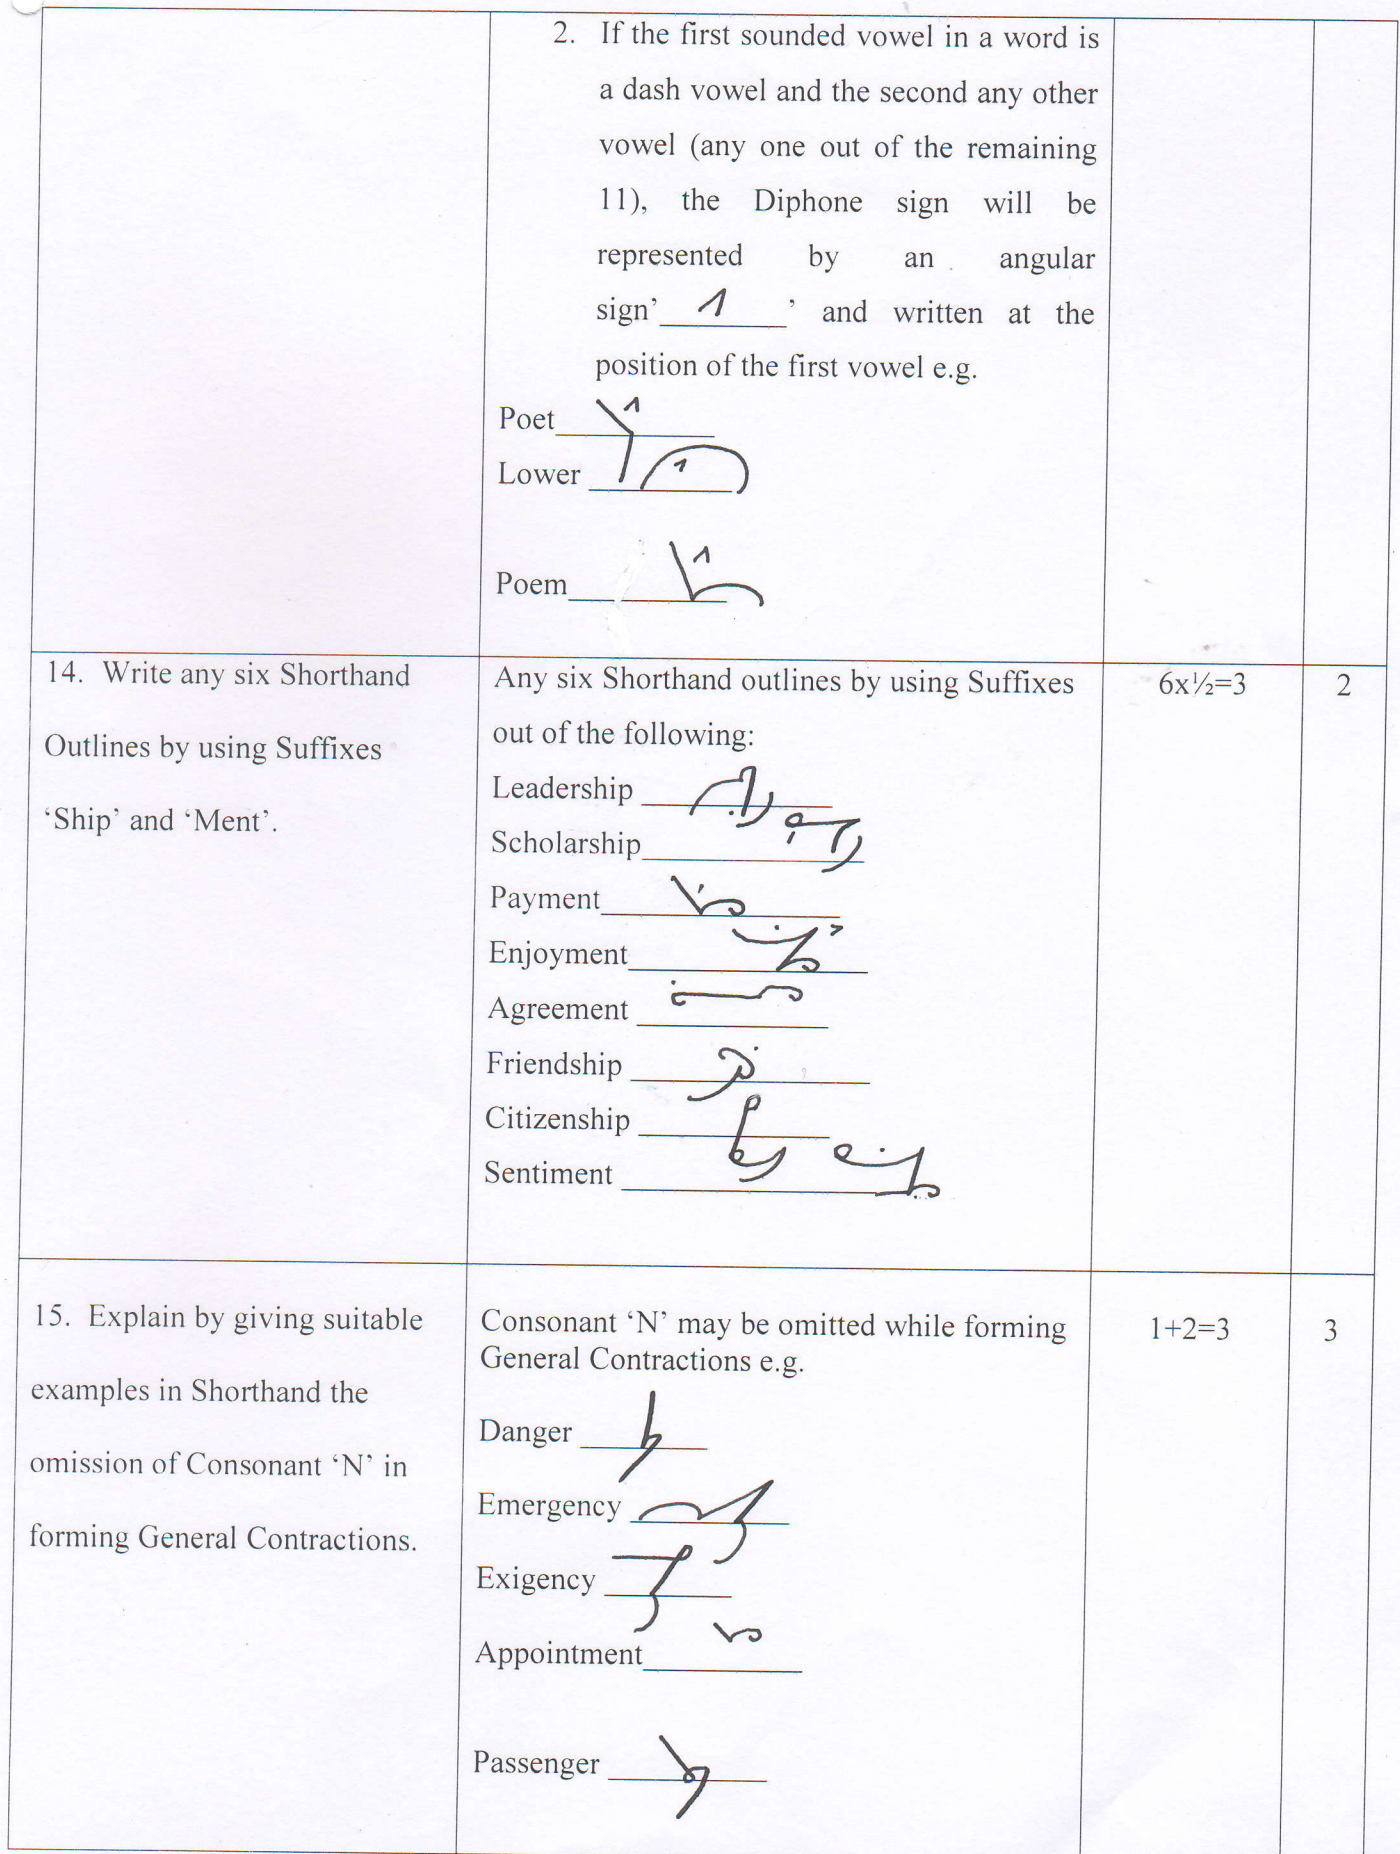 2. If the first sounded vowel in a word is
a dash vowel and the second any other
vowel (any one out of the remaining
11), the Diphone sign will be
represented by an angular
sign’ ’ and written at the
position of the first vowel e.g.
Poet
Lower
Poem
14. Write any six Shorthand
Outlines by using Suffixes
‘Ship’ and ‘Ment’.
Any six Shorthand outlines by using Suffixes
out of the following:
Leadership
Scholarship
Payment
Enjoyment
Agreement
Friendship
Citizenship
Sentiment
6x½=3
2
15. Explain by giving suitable
examples in Shorthand the
omission of Consonant ‘N’ in
forming General Contractions.
Consonant ‘N’ may be omitted while forming
General Contractions e.g.
Danger
Emergency
Exigency
Appointment
Passenger
1+2=3
3